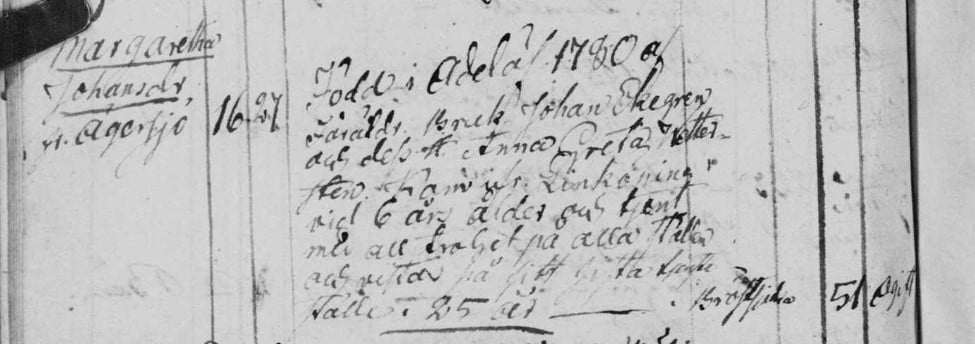 Margaretha
Johansdr
fr. Agersjö
16 27
Född i Adelöf 1780 af
Föräldr. Bruk. Johan Ekegren
och dess H. Anna Greta
sten. Kom ifr. Linköping
vid 6 års ålder och tjent
med all trohet på alla ställen
och vistas på sitt sista tjenste
ställe i 25 år
Bröstsjuka 51 Ogift